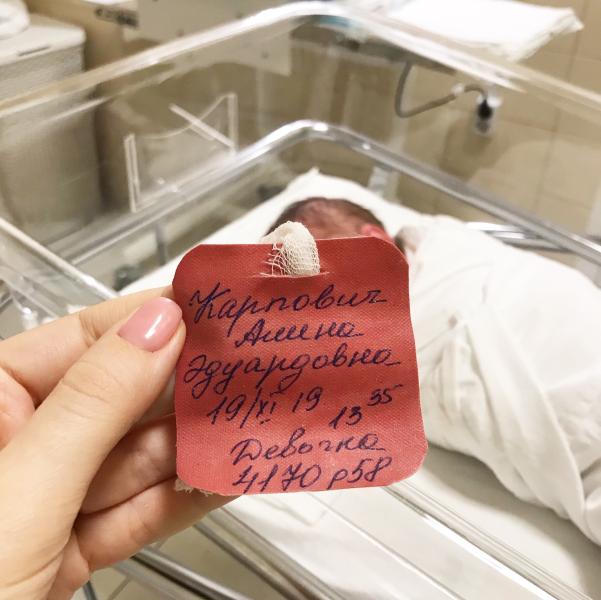 Карпович
Алина
Эдуардовна
19/XI 19 13 35
Девочка
4170 р58